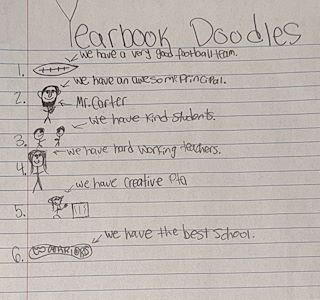 Yearbook Doodles
we have a very good football team.
1.
we have an awesome Principal.
2.
Mr. Carter
we have kind students.
3.
we have hard working teachers.
4.
we have creative Pta
5.
we have the best school.
6. GO WARRIORS